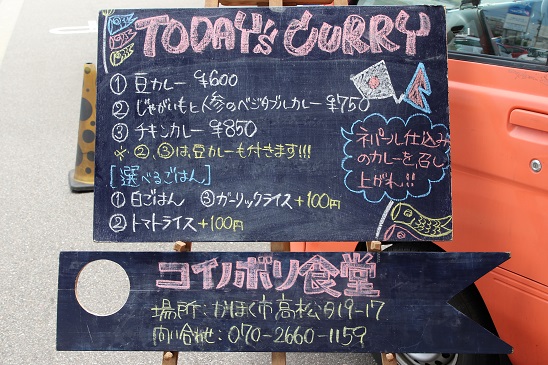 TODAY's CURRY
① 豆カレー ¥600
② じゃがいもと人参のベジタブルカレー ¥750
③ チキンカレー ¥850
※②、③は、豆カレーも付きます!!!
[選べるごはん]
① 白ごはん ③ ガーリックライス +100円
② トマトライス +100円
ネパール仕込み
のカレーを召し
上がれ!!
コイノボリ食堂
場所:かほく市高松タ19-17
問い合わせ:070-2660-1159